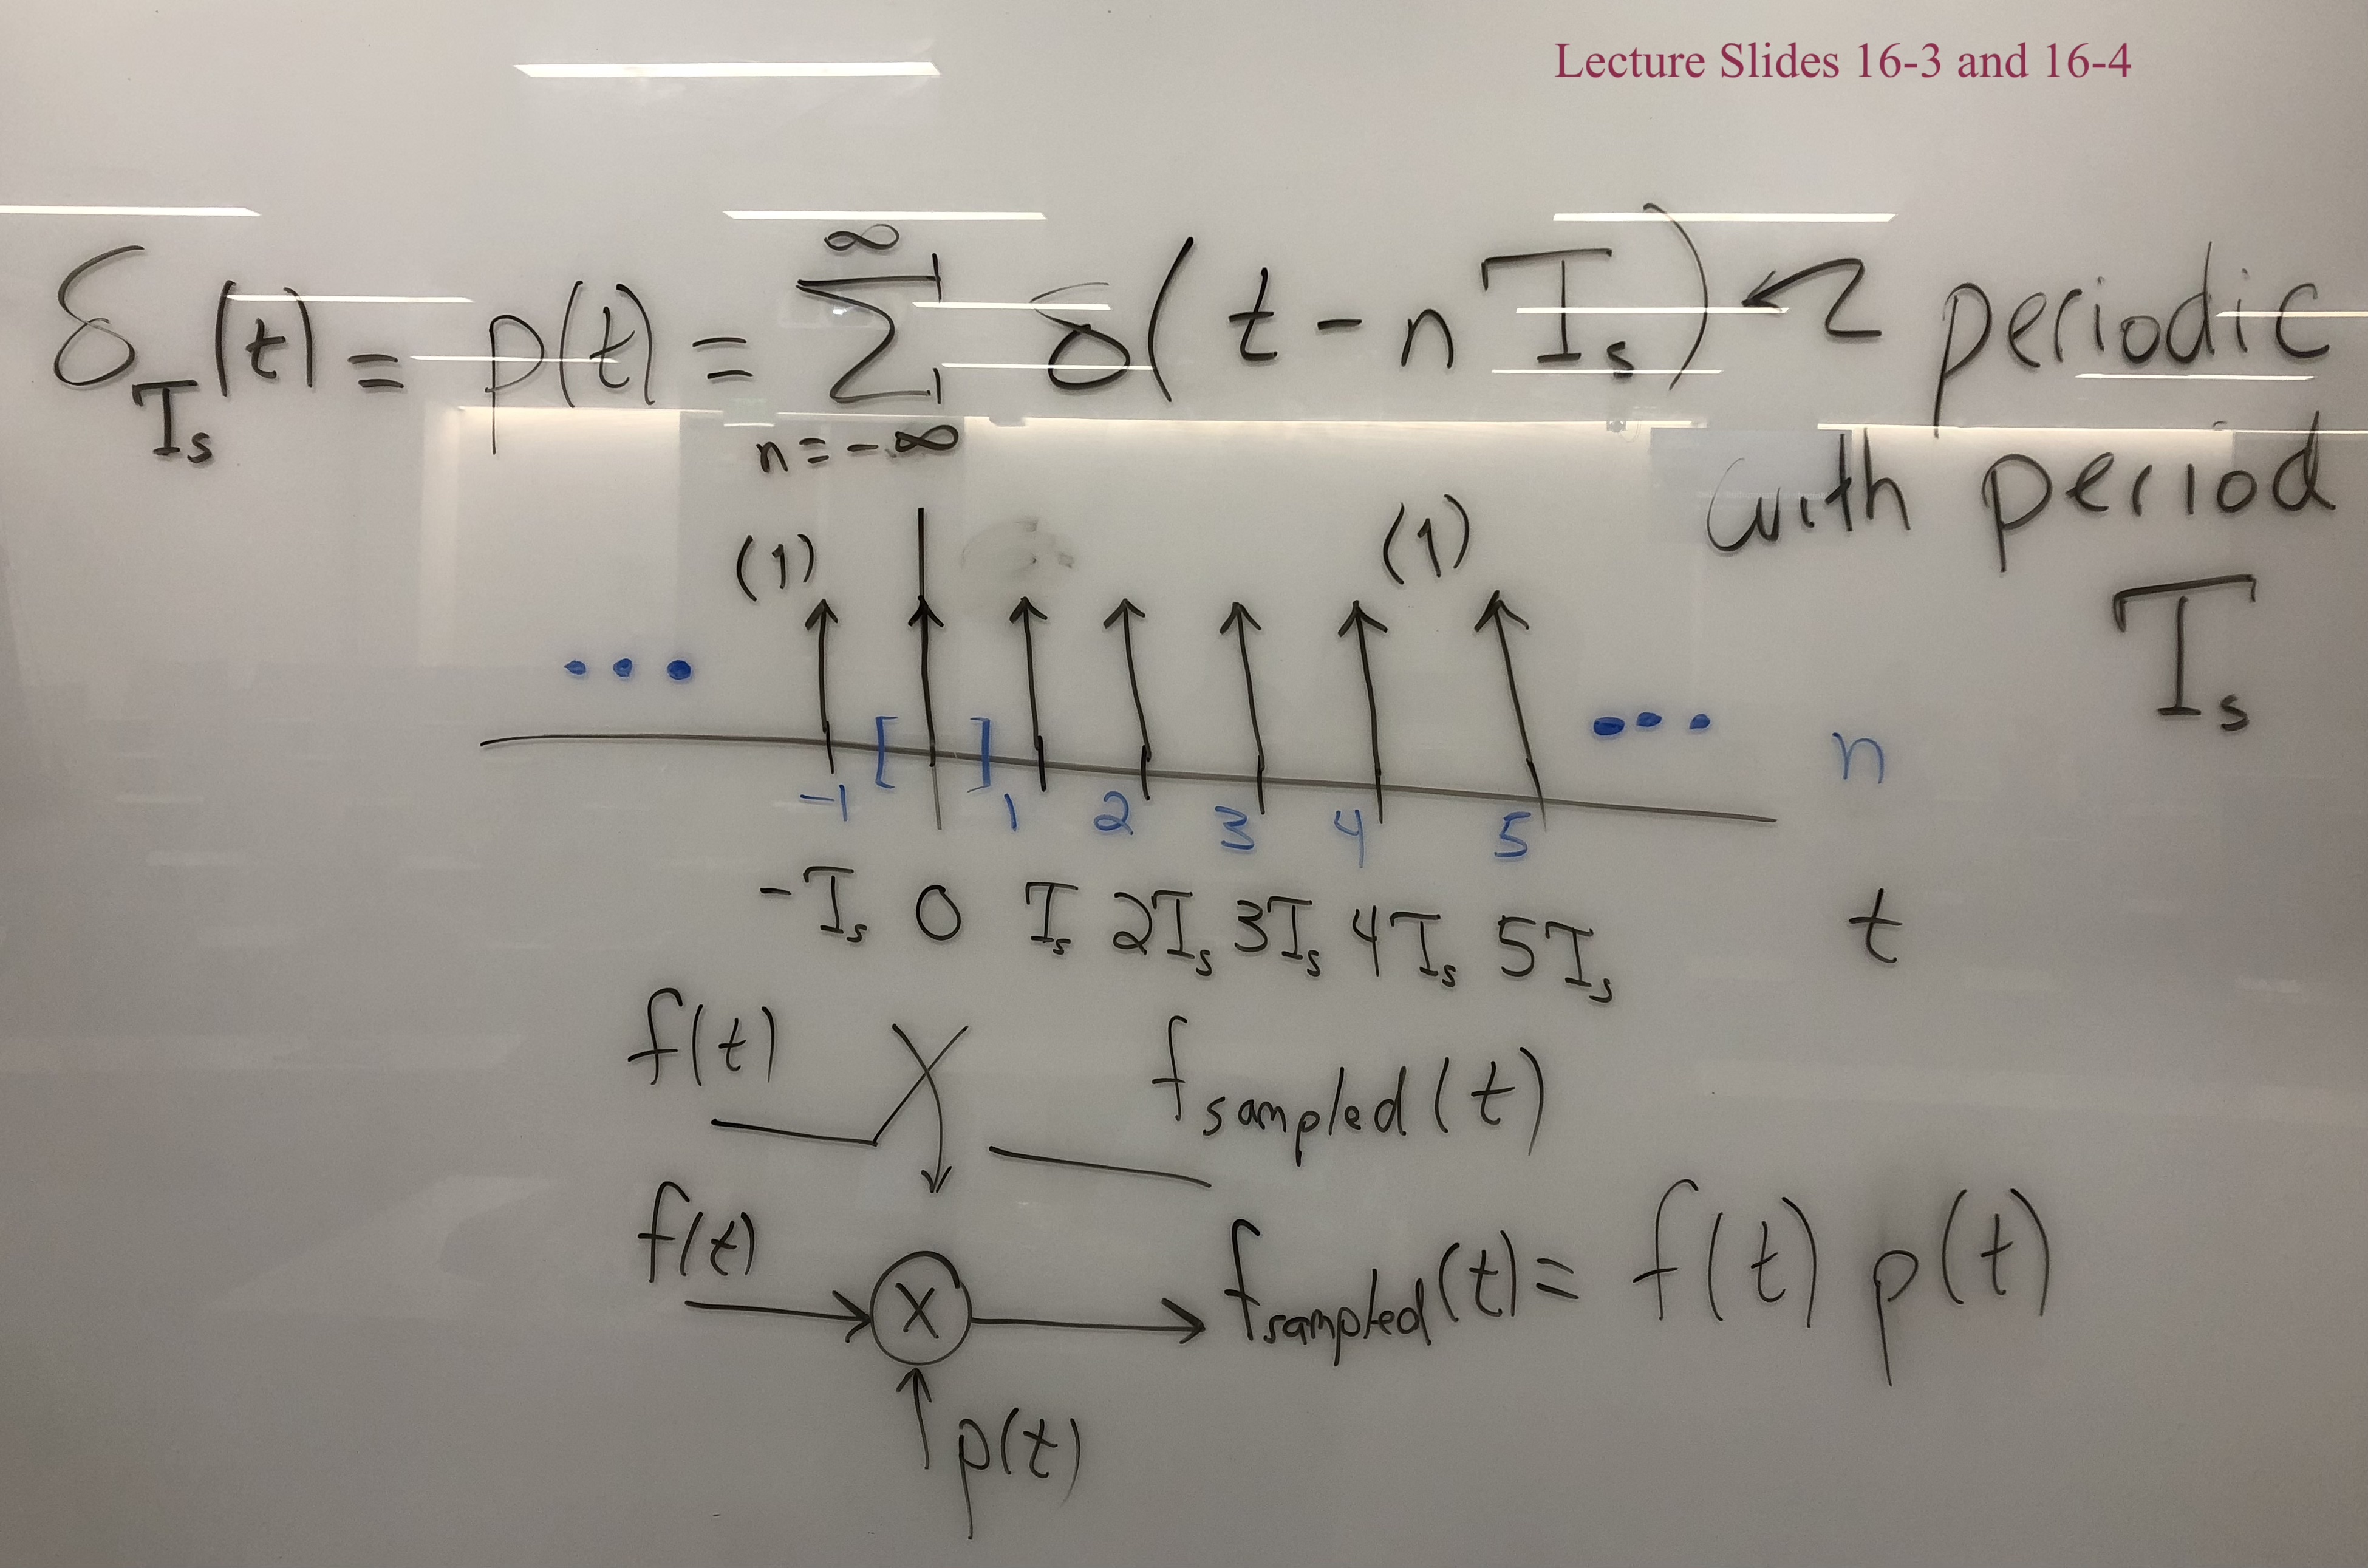 Lecture Slides 16-3 and 16-4
∞
δ_Ts(t) = p(t) = Σ δ(t - nTs) ← periodic
n = -∞
with period
Ts
(1) (1)
... ...
[ ] n
-1 1 2 3 4 5
-Ts 0 Ts 2Ts 3Ts 4Ts 5Ts t
f(t) f_sampled(t)
f(t) X f_sampled(t) = f(t) p(t)
p(t)